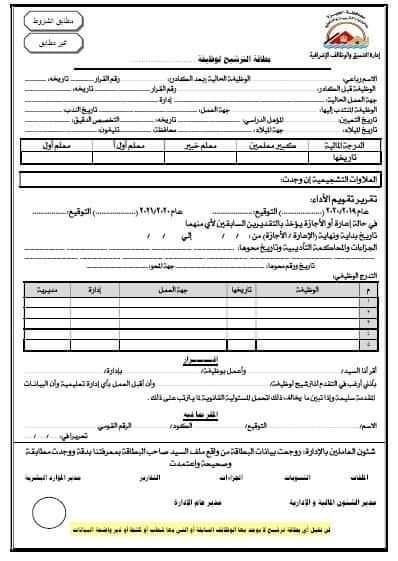 مطابق الشروط
غير مطابق
إدارة التنسيق والوظائف الإشرافية
بطاقة الترشيح لوظيفة
الاسم رباعي: الوظيفة الحالية (بعد الكادر): رقم القرار تاريخه
الوظيفة قبل الكادر: رقم القرار تاريخه
جهة العمل الحالية: إدارة
الوظيفة المنتدب إليها: جهة العمل: تاريخ الندب
تاريخ التعيين: المؤهل الدراسي: تاريخه التخصص الدقيق:
تاريخ الميلاد: جهة الميلاد: محافظة تليفون:
الدرجة المالية كبير معلمين معلم خبير معلم أول أ معلم أول
تاريخها
العلاوات التشجيعية إن وجدت:
تقرير تقويم الأداء:
عام ٢٠٢٠/٢٠١٩ (....................) التوقيع: عام ٢٠٢١/٢٠٢٠ (....................) التوقيع:
في حالة إعارة أو الأجازة يؤخذ بالتقديرين السابقين لأي منهما
تاريخ بداية ونهاية (الإعارة / الأجازة) من: / / إلى / /
الجزاءات والمحاكمة التأديبية وتاريخ محوها:
تاريخ ورقم محوها: جهة المحو:
التدرج الوظيفي:
م الوظيفة تاريخها جهة العمل إدارة مديرية
١
٢
٣
٤
٥
إقـــــرار
أقر أنا السيد/ وأعمل بوظيفة/ بإدارة/
بأنني أرغب في التقدم للترشيح لوظيفة/ وأن أقبل العمل بأي إدارة تعليمية وأن البيانات
المقدمة سليمة وإذا تبين ما يخالف ذلك أتحمل المسئولية القانونية لما يترتب على ذلك.
المقر بما فيه
الاسم/ التوقيع/ الكود/ الرقم القومي
تحريرا في: / /
شئون العاملين بالإدارة: روجعت بيانات البطاقة من واقع ملف السيد صاحب البطاقة بمعرفتنا بدقة ووجدت مطابقة
وصحيحة واعتمدت
الملفات التسويات الجزاءات التقارير مدير الموارد البشرية
مدير الشئون المالية و الإدارية مدير عام الإدارة
لن تقبل أي بطاقة ترشيح لا يوجد بها الوظائف السابقة أو التي بها شطب أو كشط أو غير واضحة البيانات